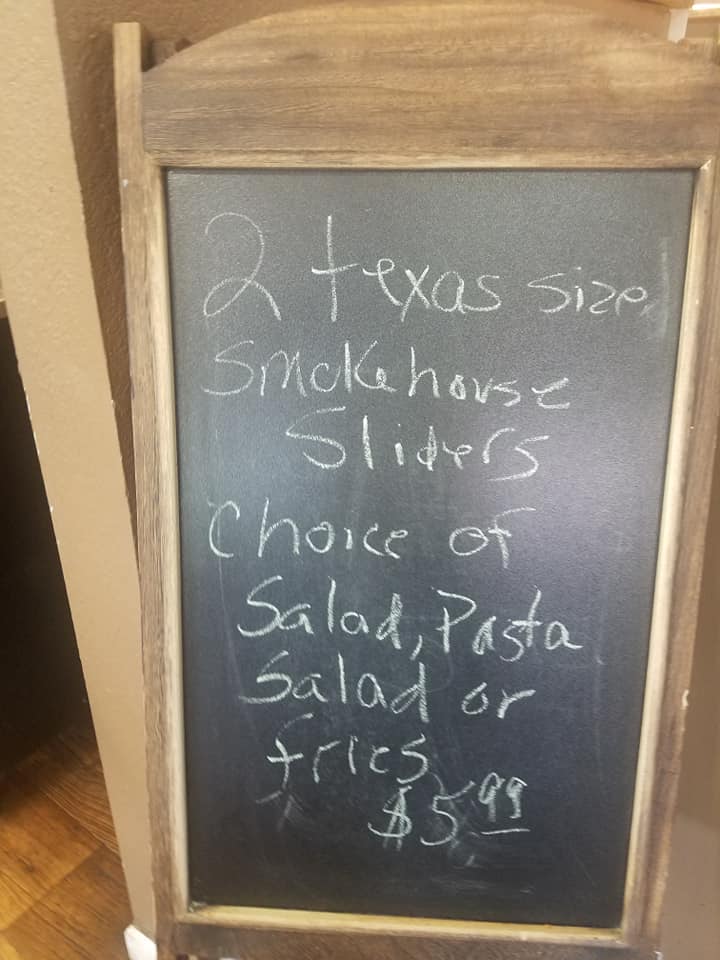 2 texas size
Smokehouse
Sliders
Choice of
Salad, Pasta
Salad or
fries
$5.99